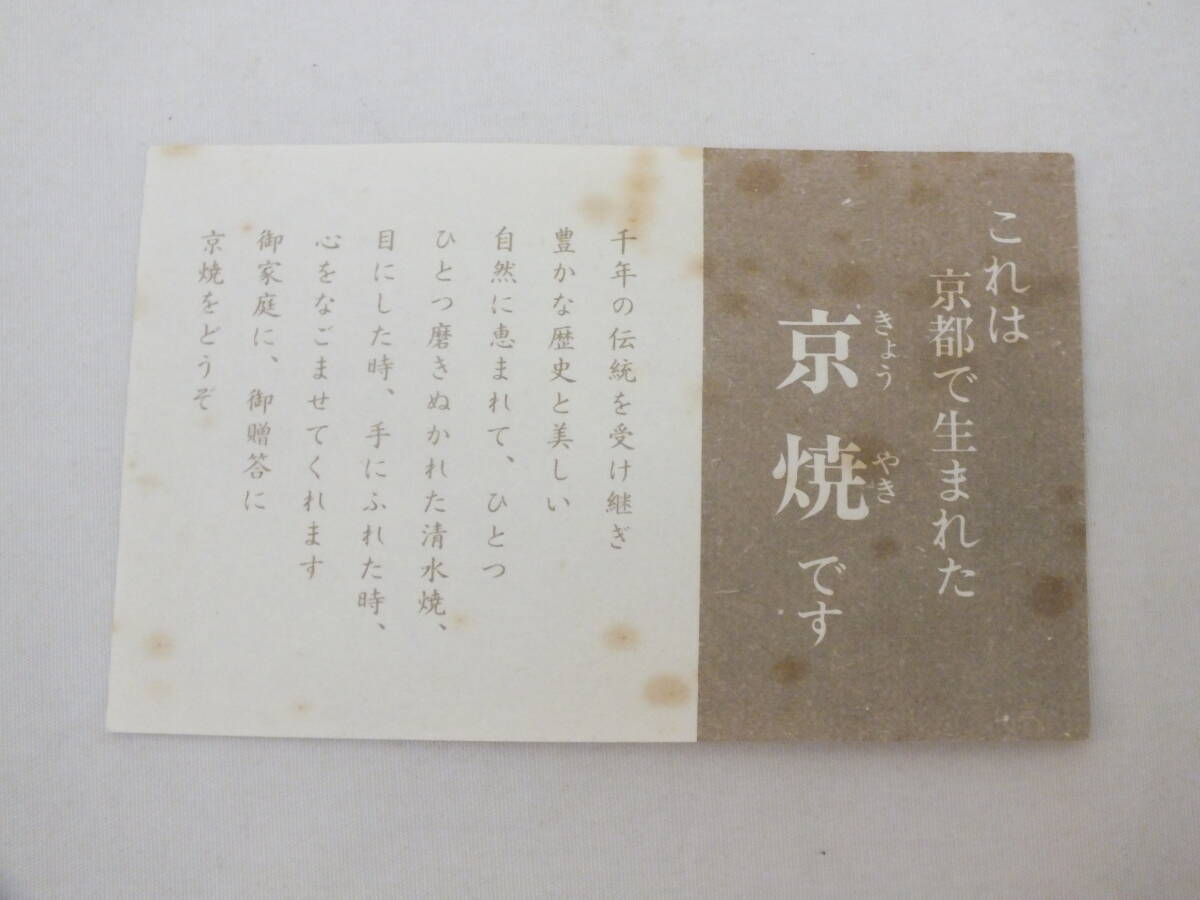 これは
京都で生まれた
京焼です
きょう やき
千年の伝統を受け継ぎ
豊かな歴史と美しい
自然に恵まれて、ひとつ
ひとつ磨きぬかれた清水焼、
目にした時、手にふれた時、
心をなごませてくれます
御家庭に、御贈答に
京焼をどうぞ